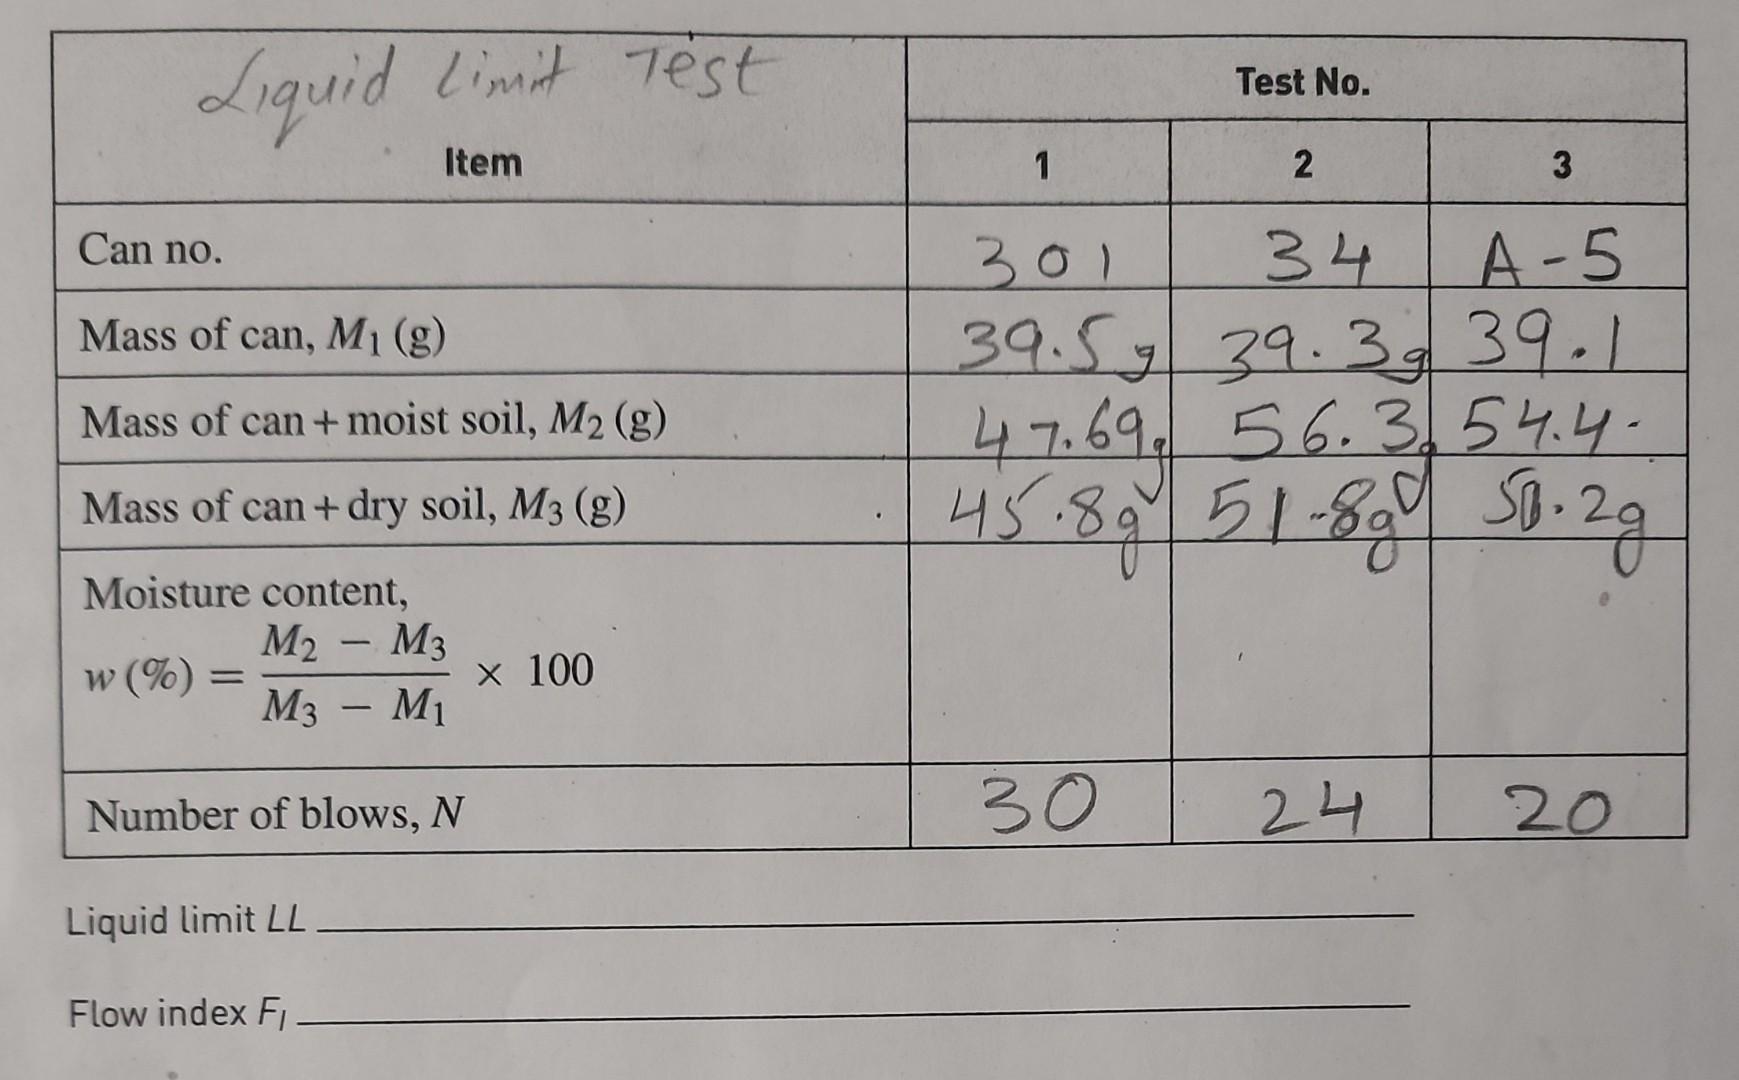 Liquid Limit Test
Test No.
Item 1 2 3
Can no. 301 34 A-5
Mass of can, M1 (g) 39.5g 39.3g 39.1
Mass of can + moist soil, M2 (g) 47.69g 56.3g 54.4.
Mass of can + dry soil, M3 (g) 45.8g 51.8g 50.2g
Moisture content,
w (%) = (M2 − M3) / (M3 − M1) × 100
Number of blows, N 30 24 20
Liquid limit LL
Flow index FI